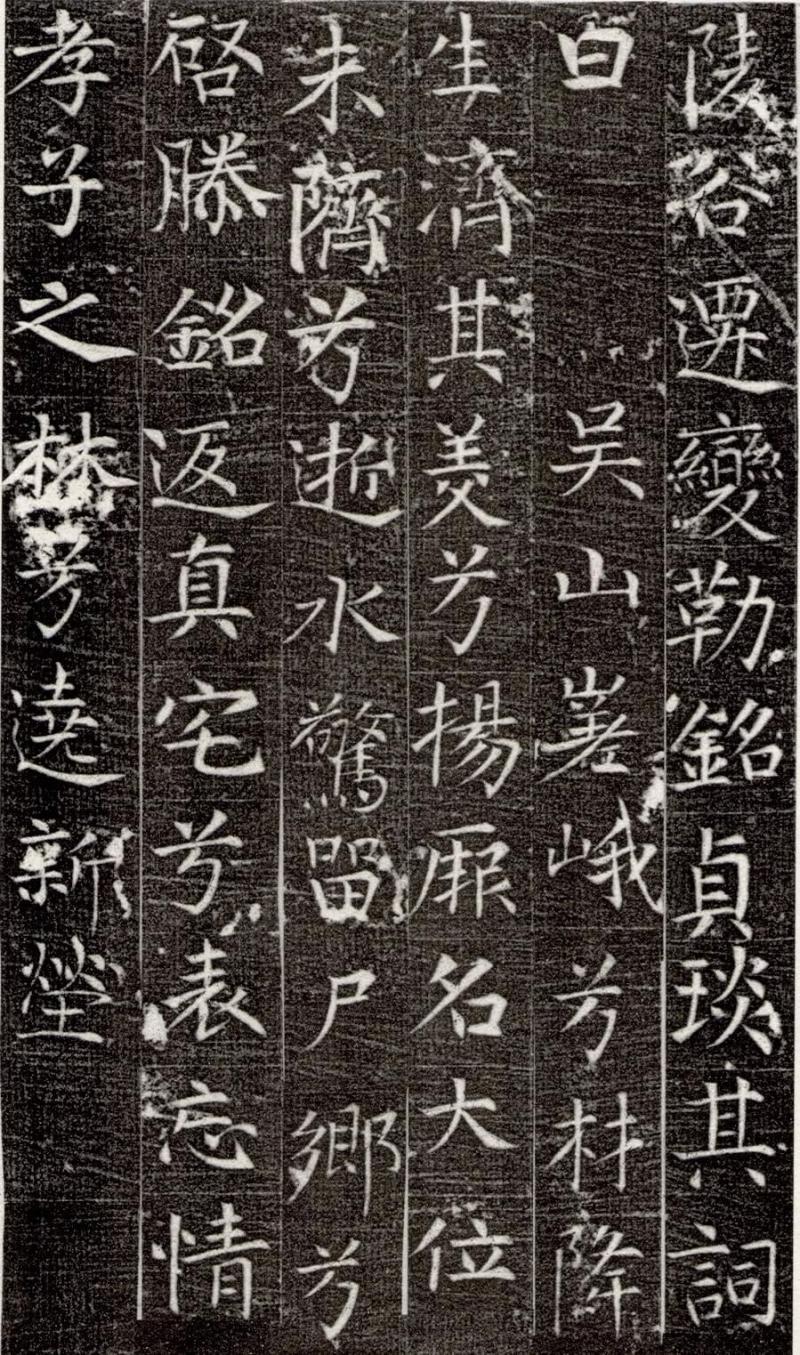 陵谷遷變勒銘貞琰其詞
曰　吴山嵳峨兮材降
生濟其美兮揚厥名大位
未隮兮逝水驚留尸鄉兮
啓滕銘返真宅兮表忘情
孝子之　兮遶新塋